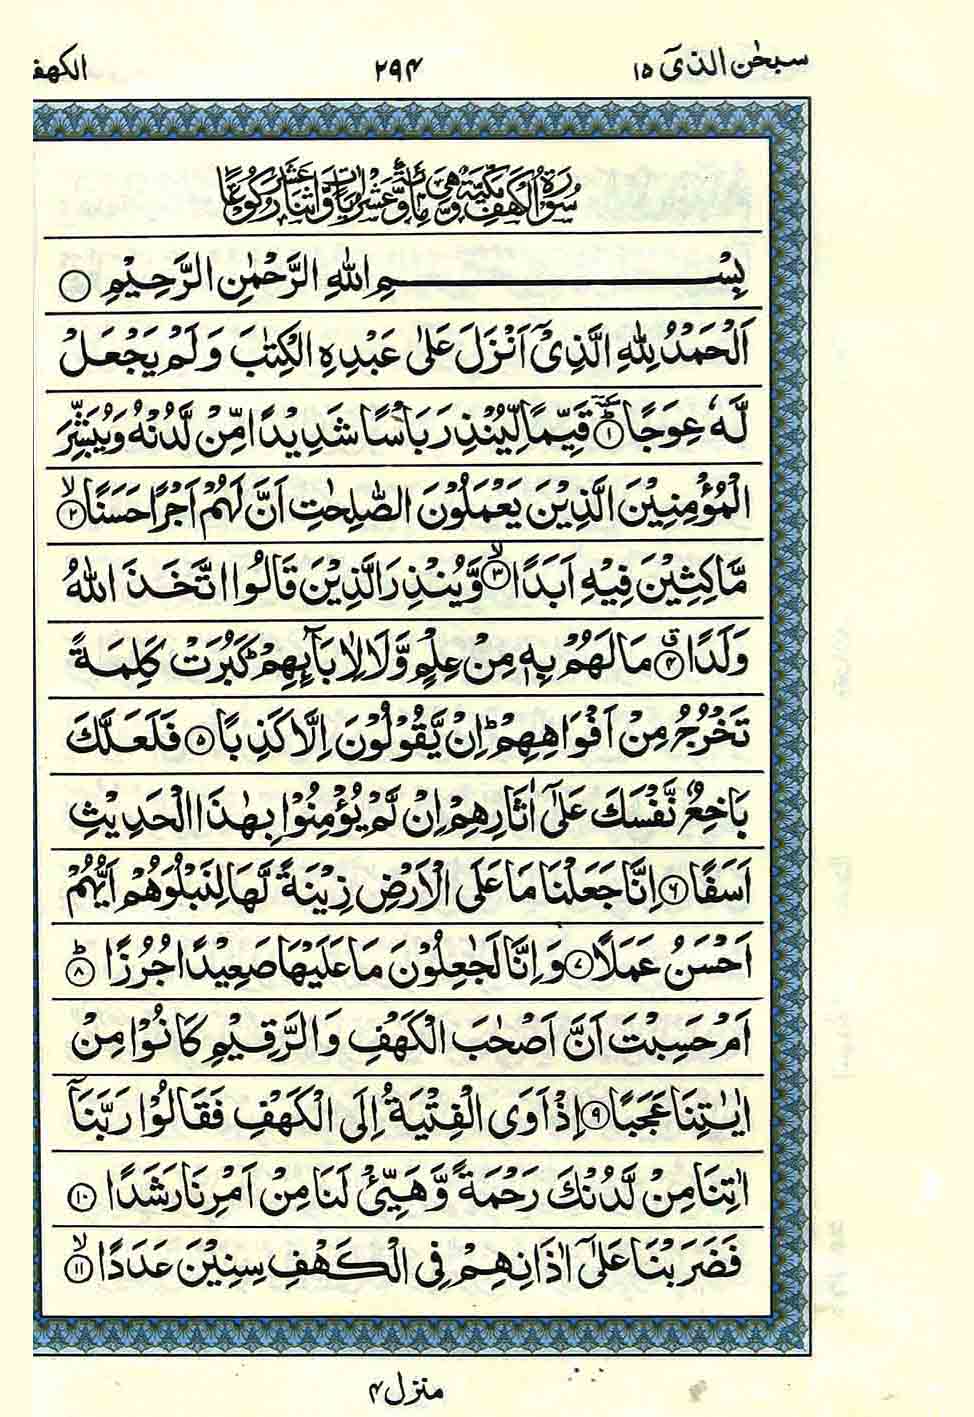 سبحٰن الذیٓ ۱۵
۲۹۴
الکهف
سُوْرَةُ الْكَهْفِ مَكِّيَّةٌ وَّهِيَ مِائَةٌ وَّعَشْرُ اٰيَاتٍ وَّاثْنَا عَشَرَ رُكُوْعًا
بِسْمِ اللّٰهِ الرَّحْمٰنِ الرَّحِيْمِ ۝
اَلْحَمْدُ لِلّٰهِ الَّذِيْٓ اَنْزَلَ عَلٰى عَبْدِهِ الْكِتٰبَ وَلَمْ يَجْعَلْ
لَّهٗ عِوَجًا ۝۱ قَيِّمًا لِّيُنْذِرَ بَاْسًا شَدِيْدًا مِّنْ لَّدُنْهُ وَيُبَشِّرَ
الْمُؤْمِنِيْنَ الَّذِيْنَ يَعْمَلُوْنَ الصّٰلِحٰتِ اَنَّ لَهُمْ اَجْرًا حَسَنًا ۝۲ۙ
مَّاكِثِيْنَ فِيْهِ اَبَدًا ۝۳ۙ وَّيُنْذِرَ الَّذِيْنَ قَالُوا اتَّخَذَ اللّٰهُ
وَلَدًا ۝۴ۗ مَا لَهُمْ بِهٖ مِنْ عِلْمٍ وَّلَا لِاٰبَآئِهِمْ ؕ كَبُرَتْ كَلِمَةً
تَخْرُجُ مِنْ اَفْوَاهِهِمْ ؕ اِنْ يَّقُوْلُوْنَ اِلَّا كَذِبًا ۝۵ فَلَعَلَّكَ
بَاخِعٌ نَّفْسَكَ عَلٰٓى اٰثَارِهِمْ اِنْ لَّمْ يُؤْمِنُوْا بِهٰذَا الْحَدِيْثِ
اَسَفًا ۝۶ اِنَّا جَعَلْنَا مَا عَلَى الْاَرْضِ زِيْنَةً لَّهَا لِنَبْلُوَهُمْ اَيُّهُمْ
اَحْسَنُ عَمَلًا ۝۷ وَاِنَّا لَجٰعِلُوْنَ مَا عَلَيْهَا صَعِيْدًا جُرُزًا ۝۸ؕ
اَمْ حَسِبْتَ اَنَّ اَصْحٰبَ الْكَهْفِ وَالرَّقِيْمِ كَانُوْا مِنْ
اٰيٰتِنَا عَجَبًا ۝۹ اِذْ اَوَى الْفِتْيَةُ اِلَى الْكَهْفِ فَقَالُوْا رَبَّنَآ
اٰتِنَا مِنْ لَّدُنْكَ رَحْمَةً وَّهَيِّئْ لَنَا مِنْ اَمْرِنَا رَشَدًا ۝۱۰
فَضَرَبْنَا عَلٰٓى اٰذَانِهِمْ فِي الْكَهْفِ سِنِيْنَ عَدَدًا ۝۱۱ۙ
منزل ۴